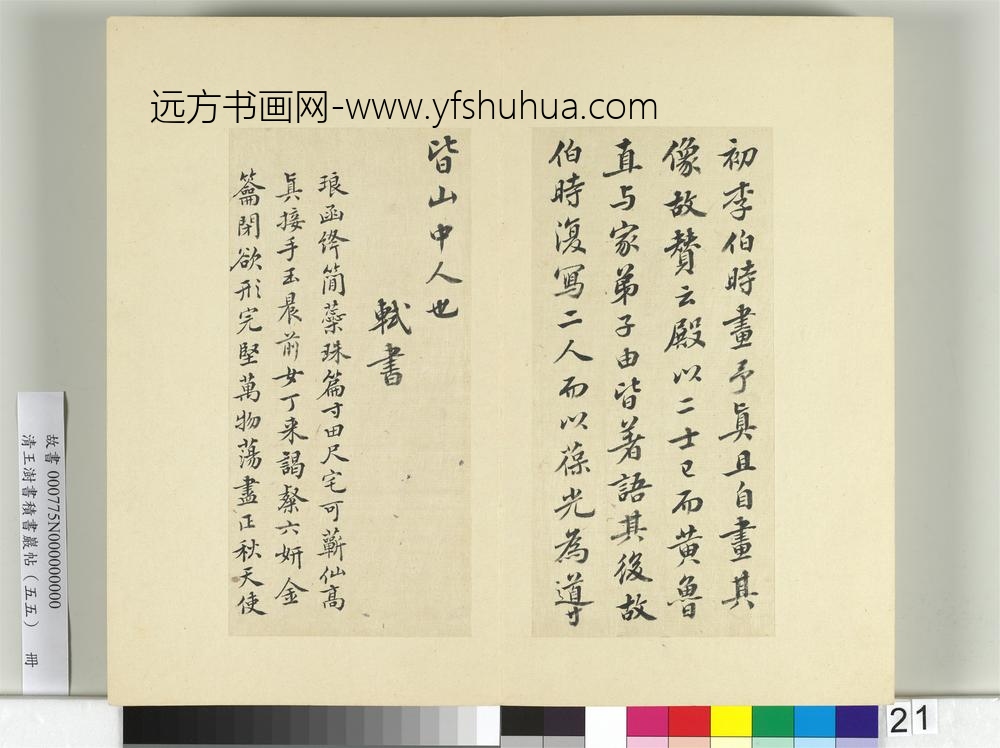 远方书画网-www.yfshuhua.com
初李伯時畫予眞且自畫其
像故贊云殿以二士已而黃魯
直与家弟子由皆著語其後故
伯時復寫二人而以葆光為導
皆山中人也
軾書
琅函絳簡蘂珠篇寸田尺宅可蘄仙高
眞接手玉晨前女丁来謁粲六妍金
籥閉欲形完堅萬物蕩盡正秋天使
故書 000775N000000000
清王澍書積書巖帖（五五） 冊
21